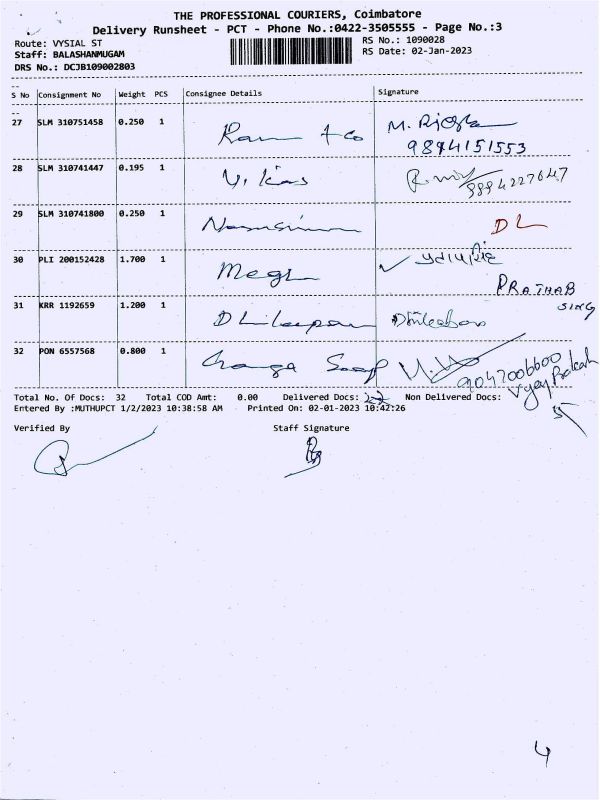 THE PROFESSIONAL COURIERS, Coimbatore
Delivery Runsheet - PCT - Phone No.:0422-3505555 - Page No.:3
Route: VYSIAL ST
RS No.: 1090028
Staff: BALASHANMUGAM
RS Date: 02-Jan-2023
DRS No.: DCJB109002803
S No Consignment No Weight PCS Consignee Details Signature
27 SLM 310751458 0.250 1 Ram & Co
9894151553
28 SLM 310741447 0.195 1 Vikas 9894227647
29 SLM 310741800 0.250 1 DL
30 PLI 200152428 1.700 1 Megh
PRATHAB
SING
31 KRR 1192659 1.200 1
32 PON 6557568 0.800 1 Ganga Soap 9047006600
Vijay Prakash
Total No. Of Docs: 32 Total COD Amt: 0.00 Delivered Docs: Non Delivered Docs:
Entered By :MUTHUPCT 1/2/2023 10:38:58 AM Printed On: 02-01-2023 10:42:26
Verified By Staff Signature
4